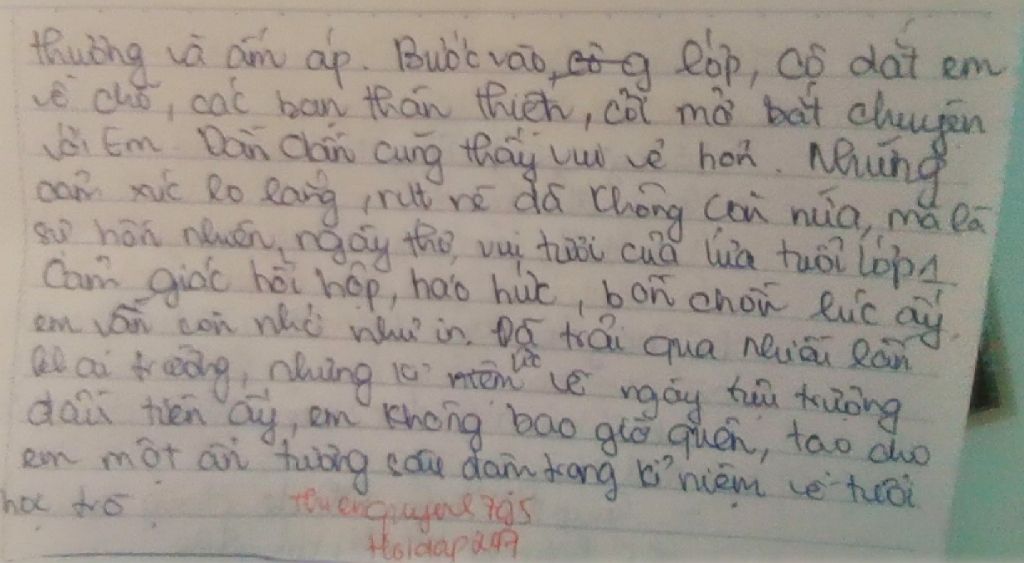 thường và ấm áp. Bước vào, lớp, cô dắt em
về chỗ, các bạn thân thiện, cởi mở bắt chuyện
với Em Dần dần cũng thấy vui vẻ hơn. Những
cảm xúc lo lắng, rụt rè đã không còn nữa, mà là
sự hồn nhiên, ngây thơ, vui tươi của lứa tuổi lớp 1
Cảm giác hồi hộp, háo hức, bồn chồn lúc ấy,
em vẫn còn nhớ như in. Đã trải qua nhiều lần
khai trường, những kỉ niệm về ngày tựu trường
đầu tiên ấy, em không bao giờ quên, tạo cho
em một ấn tượng sâu đậm trong kỉ niệm về tuổi
học trò.
Hoidap247